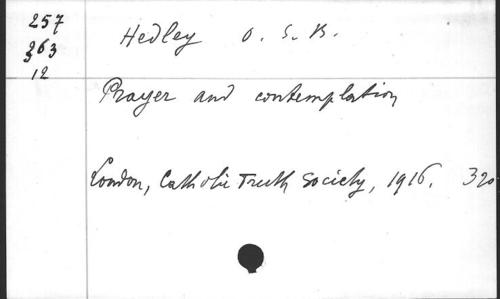 257
363
12
Hedley O. S. B.
Prayer and contemplation
London, Catholic Truth Society, 1916. 320